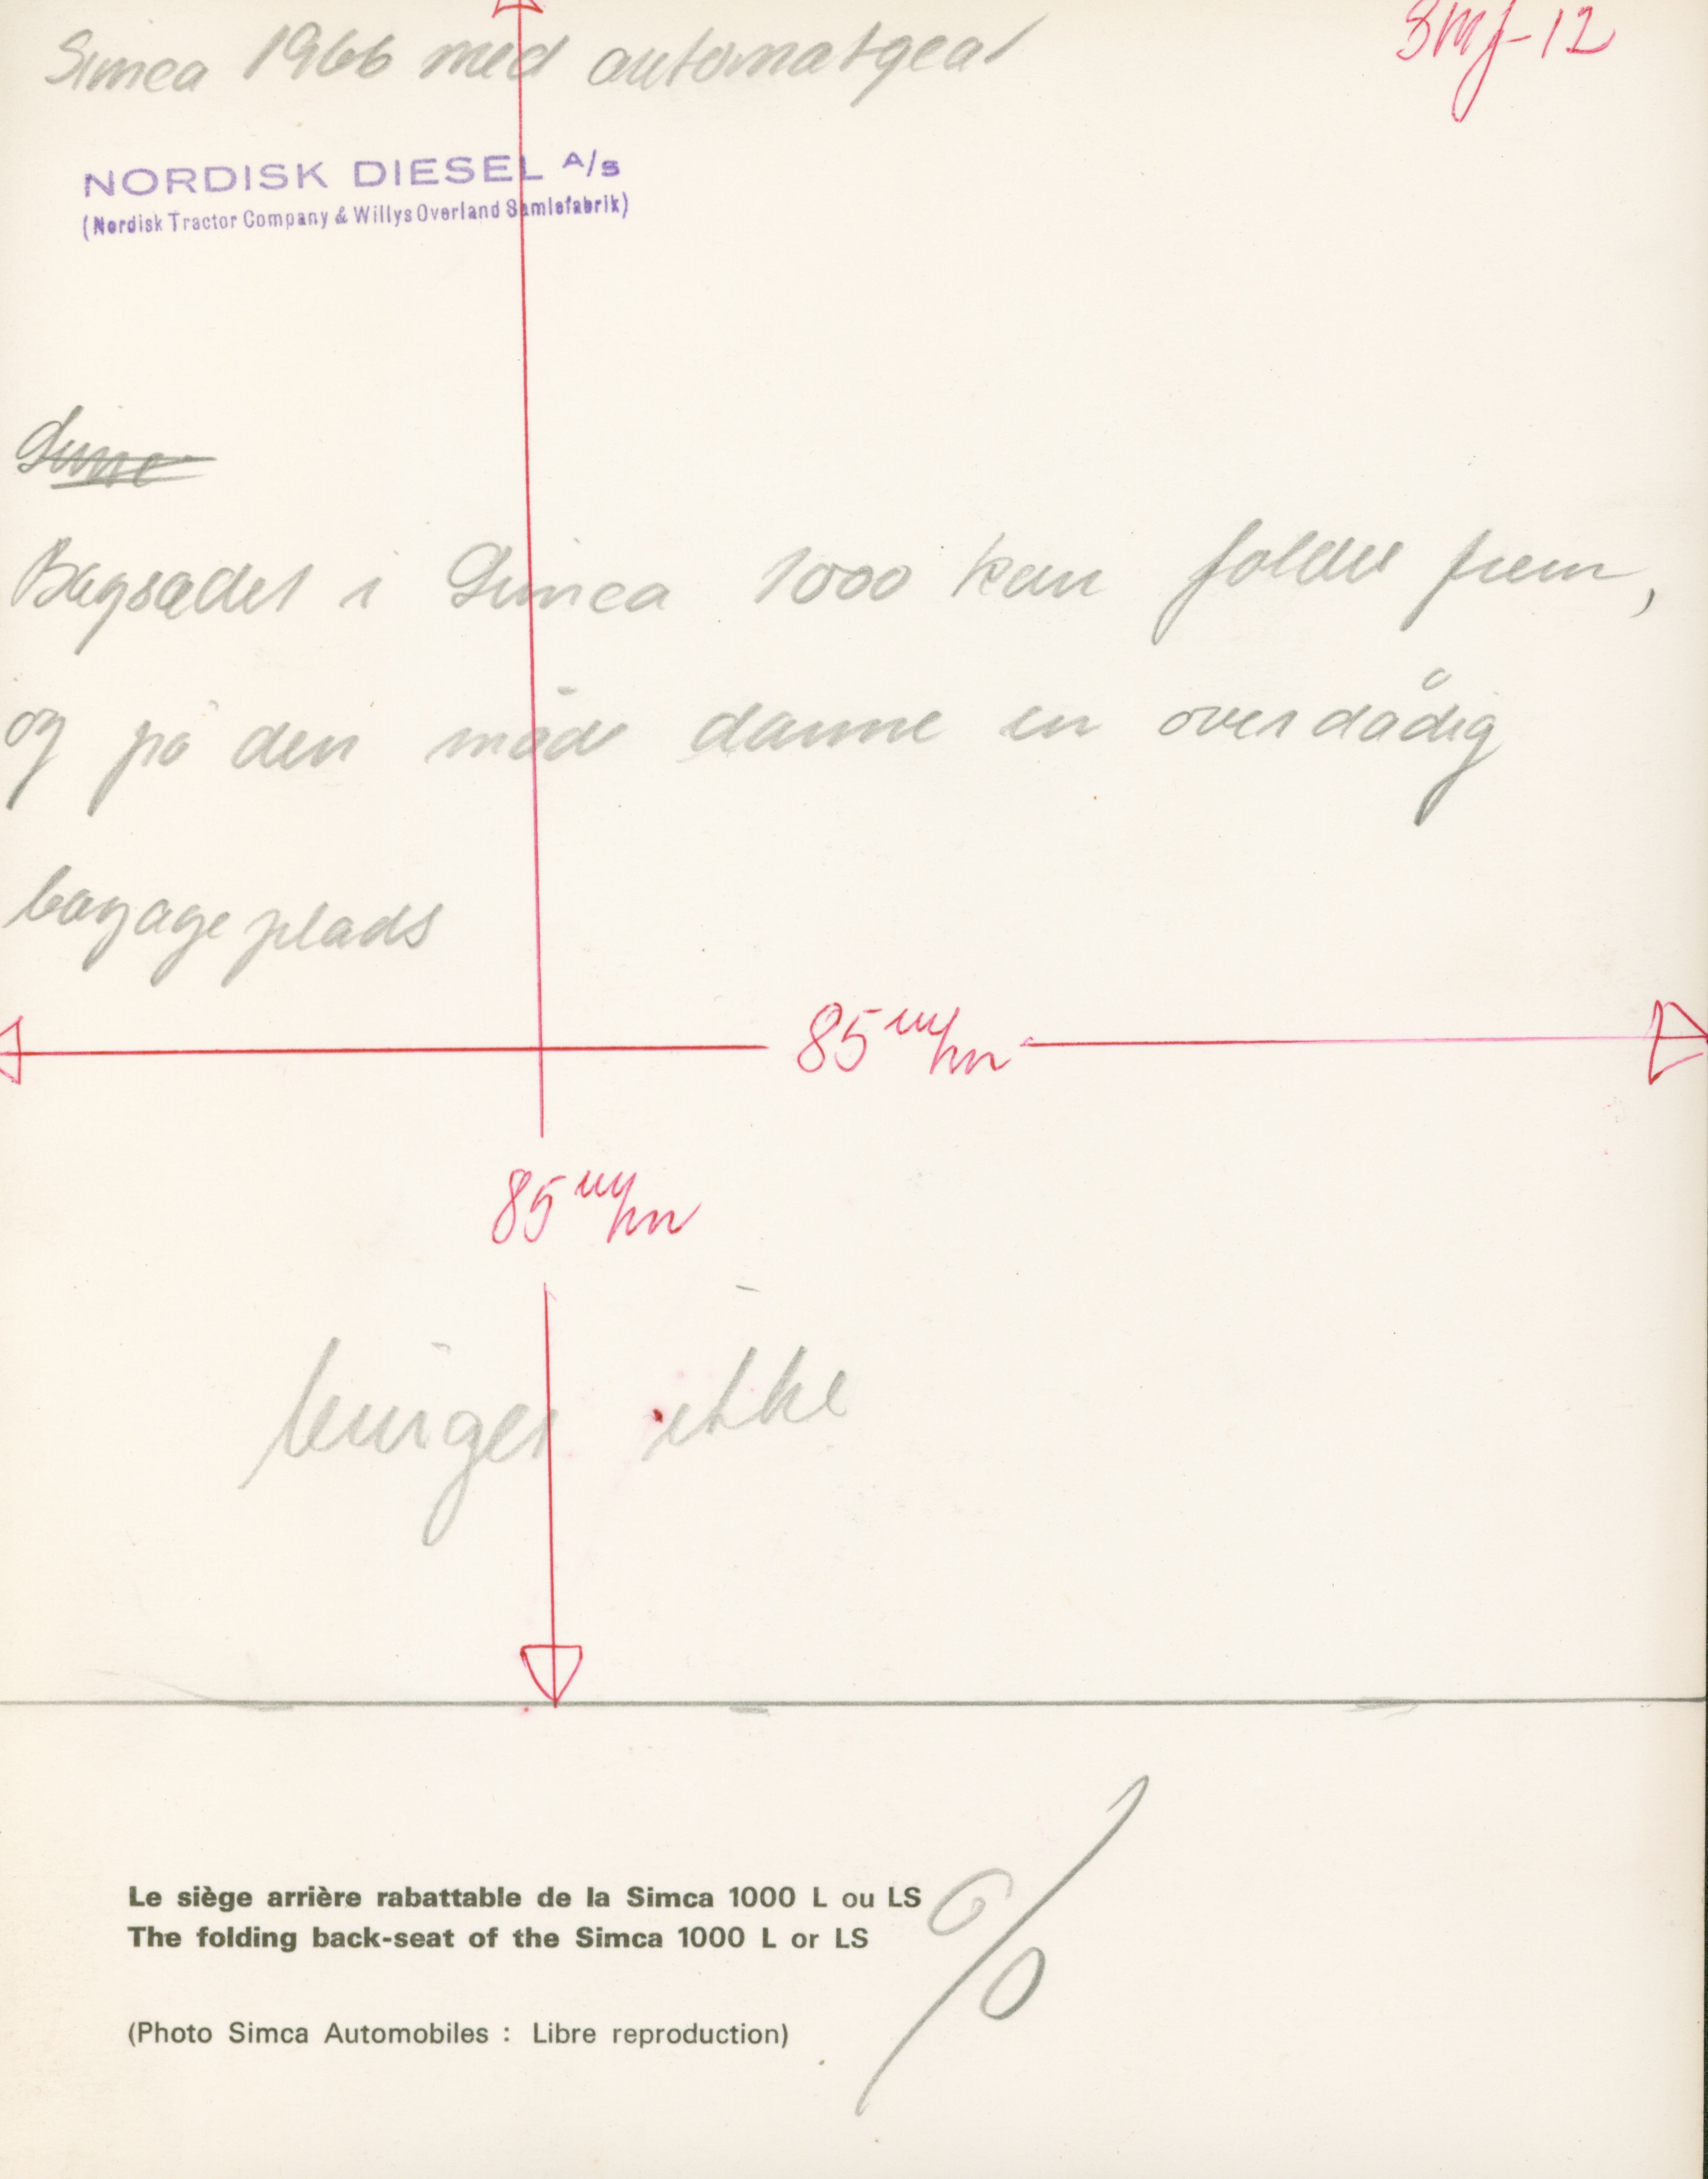 Simca 1966 med automatgear
NORDISK DIESEL A/S
(Nordisk Tractor Company & Willys Overland Samlefabrik)
Simc
Bagsædet i Simca 1000 kan foldes frem,
og på den måde danne en overdådig
bagageplads
85 m/m
85 m/m
ikke
Le siège arrière rabattable de la Simca 1000 L ou LS
The folding back-seat of the Simca 1000 L or LS
%
(Photo Simca Automobiles : Libre reproduction)